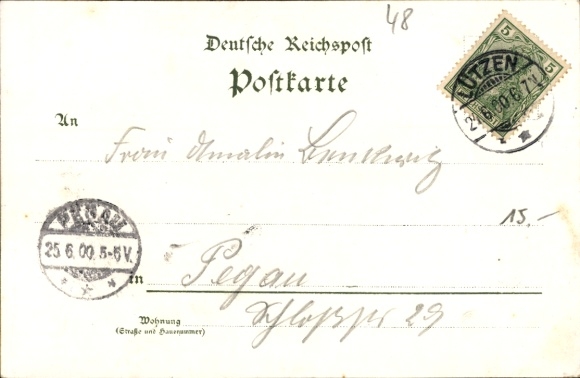 48
Deutsche Reichspost
Postkarte
5 5
LÜTZEN
6.00. 6-7V.
An
Frau Amalin
15.-
PEGAU
25.6.00.5-6V.
in
Pegau
Wohnung
(Straße und Hausnummer)
Schloßstr 29